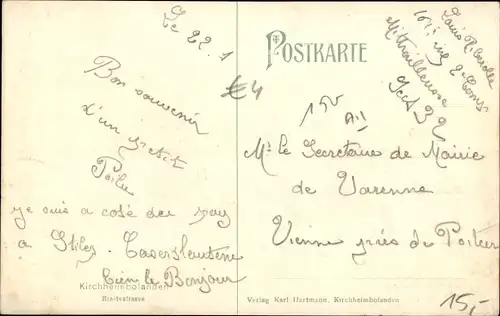 Le 22. 1
Bon souvenir
d'un petit
Poilu
je suis a coté du
a
bien le Bonjour
Kirchheimbolanden
Breitestrasse
POSTKARTE
Louis
2e
Mitrailleuse
Sect 39
€4
150
Mr le Secretaire de Mairie
de Varenne
Vienne près de Poitier
Verlag Karl Hartmann, Kirchheimbolanden
15,-